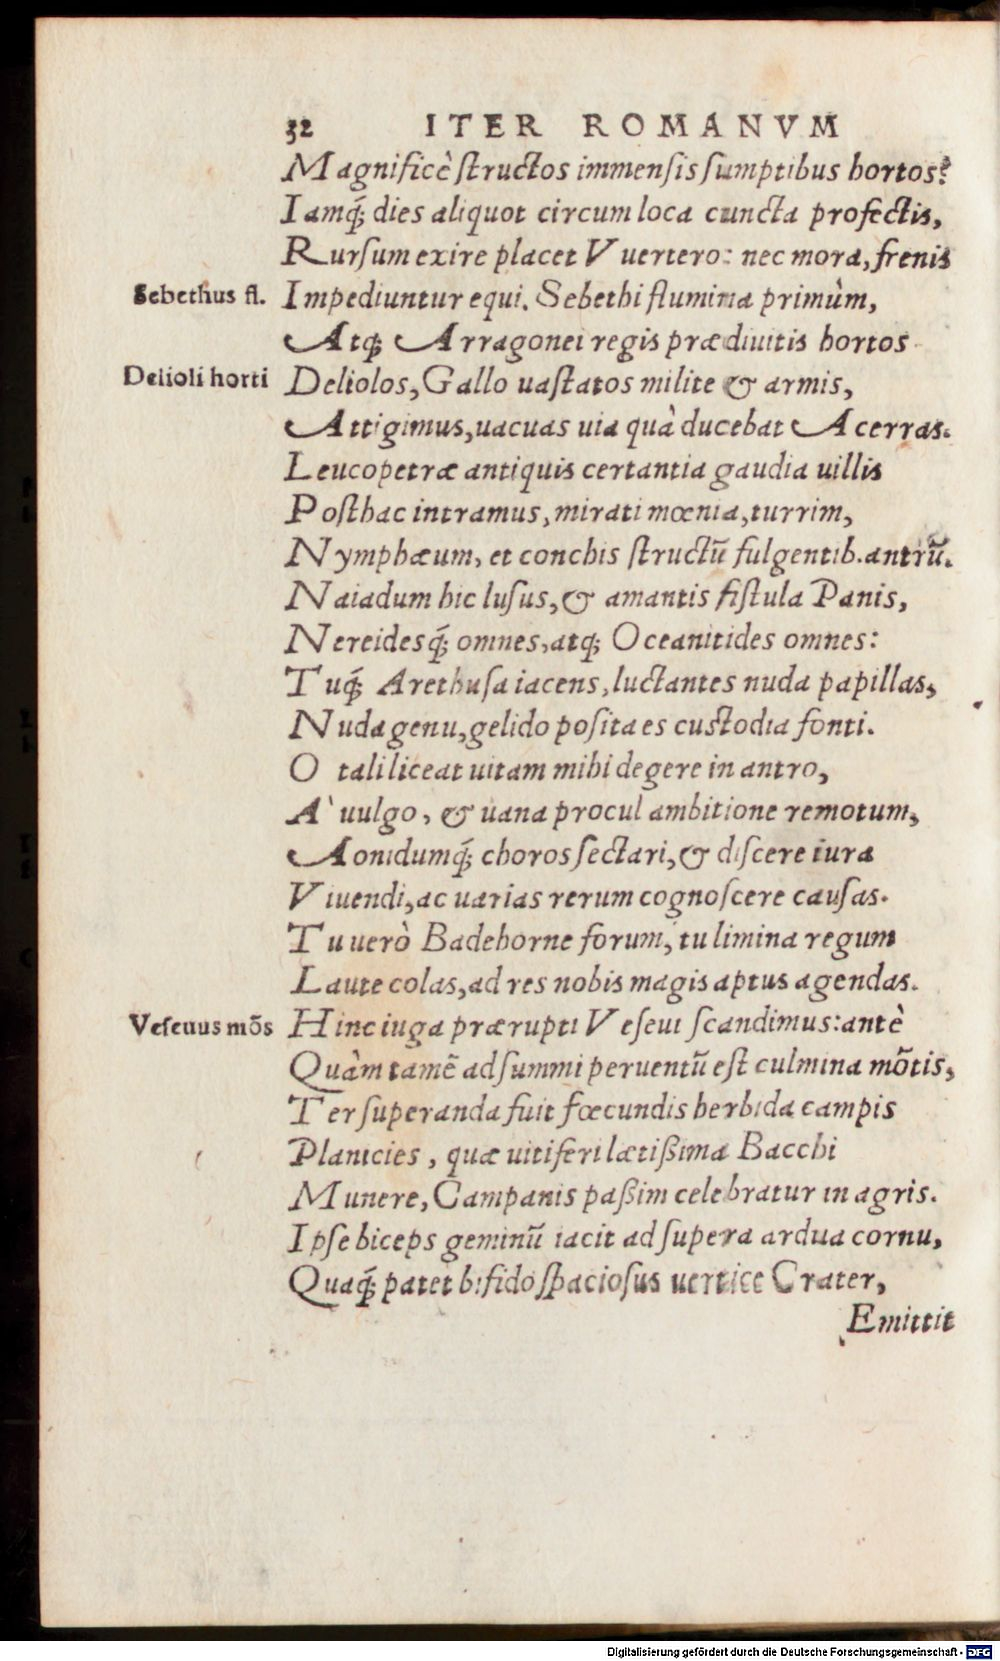 32 ITER ROMANVM
Magnificè ſtructos immenſis ſumptibus hortos?
Iamq́; dies aliquot circum loca cuncta profectis,
Rurſum exire placet Vuertero: nec mora, frenis
Sebethus fl. Impediuntur equi. Sebethi flumina primùm,
Atq; Arragonei regis prædiuitis hortos
Delioli horti Deliolos, Gallo uaſtatos milite & armis,
Attigimus, uacuas uia quà ducebat Acerras.
Leucopetræ antiquis certantia gaudia uillis
Poſthac intramus, mirati mœnia, turrim,
Nymphæum, et conchis ſtructū fulgentib. antrū.
Naiadum hic luſus, & amantis fiſtula Panis,
Nereidesq́; omnes, atq; Oceanitides omnes:
Tuq́; Arethuſa iacens, luctantes nuda papillas,
Nuda genu, gelido poſita es custodia fonti.
O tali liceat uitam mihi degere in antro,
A` uulgo, & uana procul ambitione remotum,
Aonidumq́; choros ſectari, & diſcere iura
Viuendi, ac uarias rerum cognoſcere cauſas.
Tu uerò Badehorne forum, tu limina regum
Laute colas, ad res nobis magis aptus agendas.
Veſeuus mōs Hinc iuga prærupti Veſeui ſcandimus: antè
Quàm tamē ad ſummi peruentū eſt culmina mōtis,
Ter ſuperanda fuit fœcundis herbida campis
Planicies, quæ uitiferi lætißima Bacchi
Munere, Campanis paßim celebratur in agris.
Ipſe biceps geminū iacit ad ſupera ardua cornu,
Quaq́; patet bifido ſpacioſus uertice Crater,
Emittit
Digitalisierung gefördert durch die Deutsche Forschungsgemeinschaft - DFG